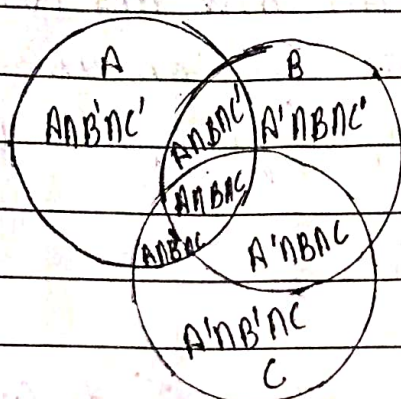 A
B
A∩B'∩C'
A∩B∩C'
A'∩B∩C'
A∩B∩C
A∩B'∩C
A'∩B∩C
A'∩B'∩C
C